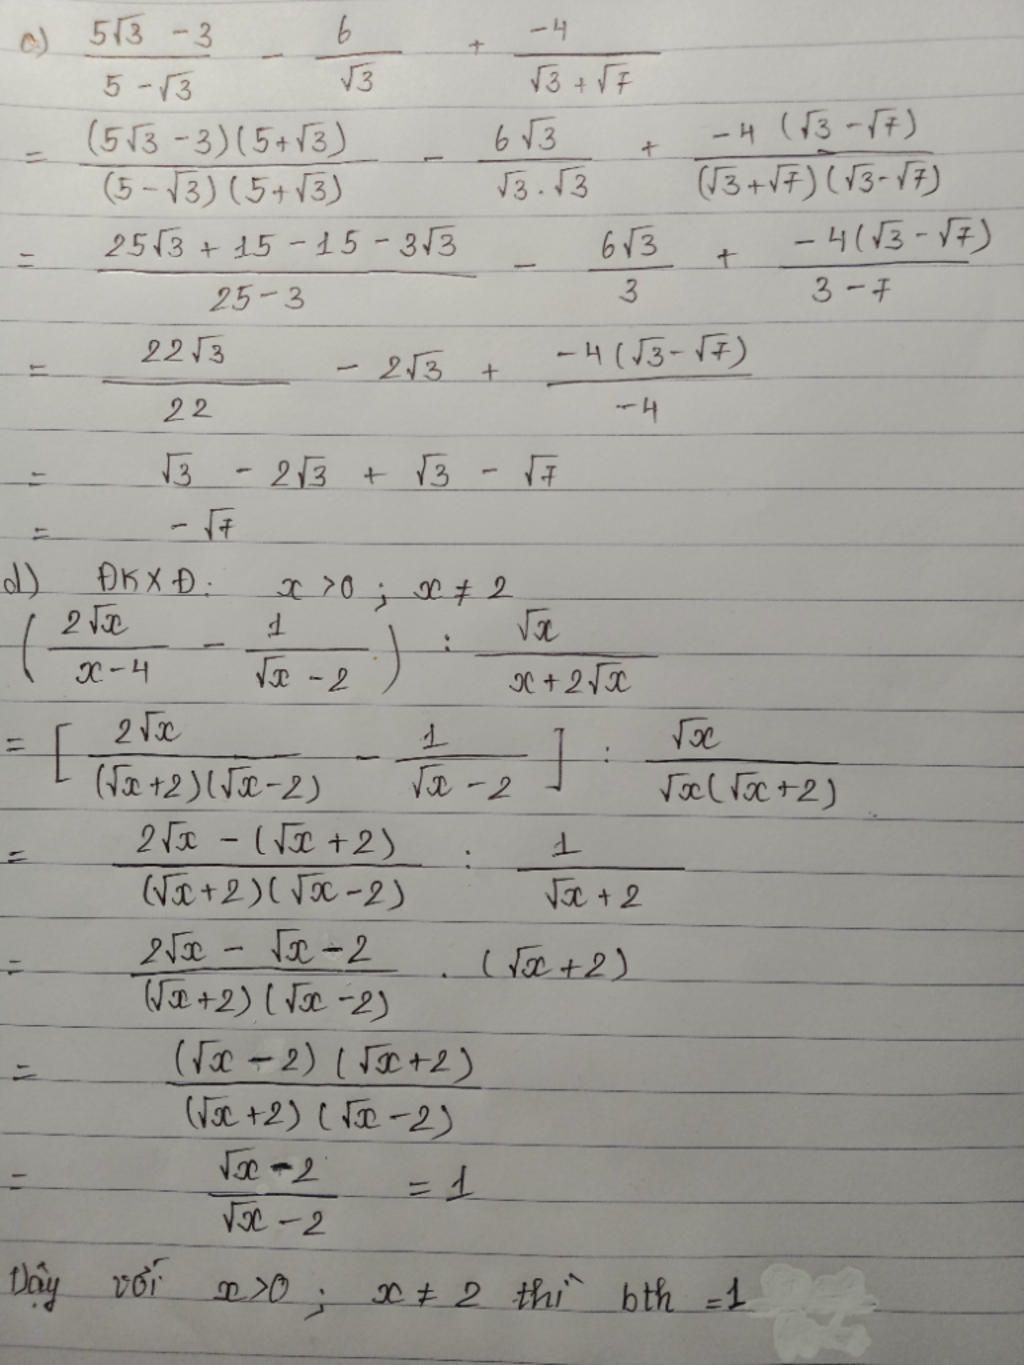 c) (5√3 - 3)/(5 - √3) - 6/√3 + (-4)/(√3 + √7)
= ((5√3 - 3)(5 + √3))/((5 - √3)(5 + √3)) - (6√3)/(√3 . √3) + (-4(√3 - √7))/((√3 + √7)(√3 - √7))
= (25√3 + 15 - 15 - 3√3)/(25 - 3) - (6√3)/3 + (-4(√3 - √7))/(3 - 7)
= (22√3)/22 - 2√3 + (-4(√3 - √7))/(-4)
= √3 - 2√3 + √3 - √7
= -√7
d) ĐKXĐ: x > 0 ; x ≠ 2
((2√x)/(x - 4) - 1/(√x - 2)) : √x/(x + 2√x)
= [(2√x)/((√x + 2)(√x - 2)) - 1/(√x - 2)] : √x/(√x(√x + 2))
= (2√x - (√x + 2))/((√x + 2)(√x - 2)) : 1/(√x + 2)
= (2√x - √x - 2)/((√x + 2)(√x - 2)) . (√x + 2)
= ((√x - 2)(√x + 2))/((√x + 2)(√x - 2))
= (√x - 2)/(√x - 2) = 1
Vậy với x > 0 ; x ≠ 2 thì bth = 1